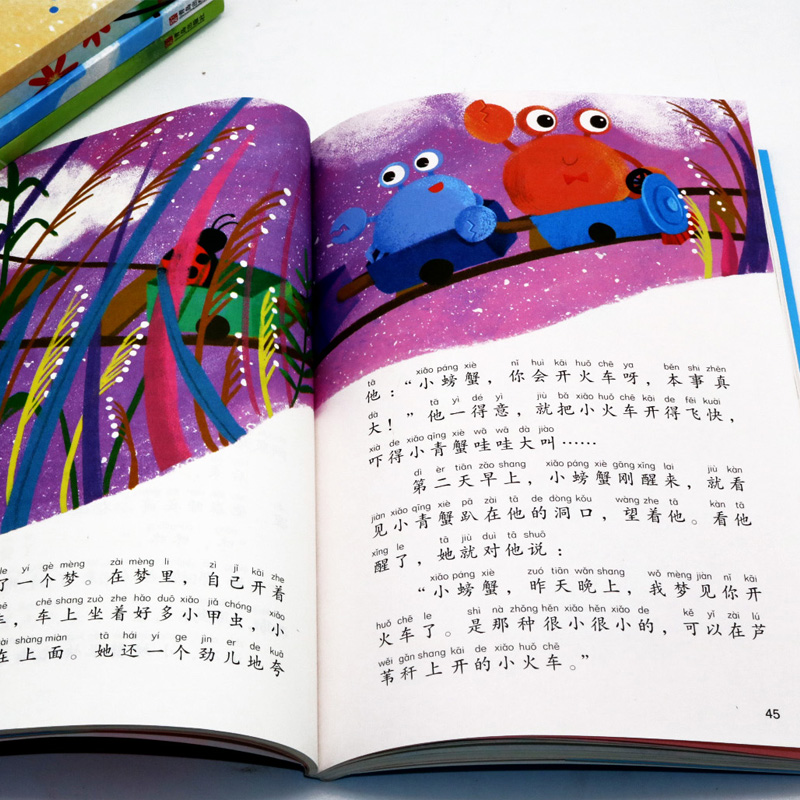 le yí gè mèng zài mèng li zì jǐ kāi zhe
了一个梦。在梦里，自己开着
chē shang zuò zhe hǎo duō xiǎo jiǎ chóng xiǎo
车，车上坐着好多小甲虫，小
zài shàng miàn tā hái yí ge jìn er de kuā
在上面。她还一个劲儿地夸
tā xiǎo páng xiè nǐ huì kāi huǒ chē ya běn shi zhēn
他：“小螃蟹，你会开火车呀，本事真
dà tā yì dé yì jiù bǎ xiǎo huǒ chē kāi de fēi kuài
大！”他一得意，就把小火车开得飞快，
xià de xiǎo qīng xiè wā wā dà jiào
吓得小青蟹哇哇大叫……
dì èr tiān zǎo shang xiǎo páng xiè gāng xǐng lai jiù kàn
第二天早上，小螃蟹刚醒来，就看
jiàn xiǎo qīng xiè pā zài tā de dòng kǒu wàng zhe tā kàn tā
见小青蟹趴在他的洞口，望着他。看他
xǐng le tā jiù duì tā shuō
醒了，她就对他说：
xiǎo páng xiè zuó tiān wǎn shang wǒ mèng jiàn nǐ kāi
“小螃蟹，昨天晚上，我梦见你开
huǒ chē le shì nà zhǒng hěn xiǎo hěn xiǎo de kě yǐ zài lú
火车了。是那种很小很小的，可以在芦
wěi gǎn shang kāi de xiǎo huǒ chē
苇秆上开的小火车。”
45